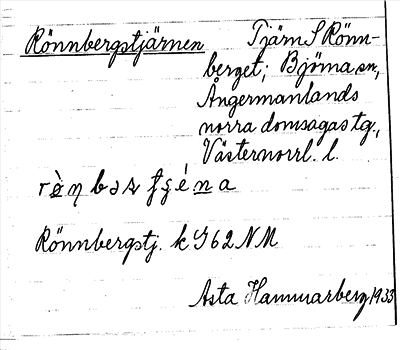 Rönnbergstjärnen Tjärn S Rönn-
berget; Björna sn,
Ångermanlands
norra domsagas tg.,
Västernorrl. l.
Rönnbergstj. k I 62 NM
Asta Hammarberg 1933